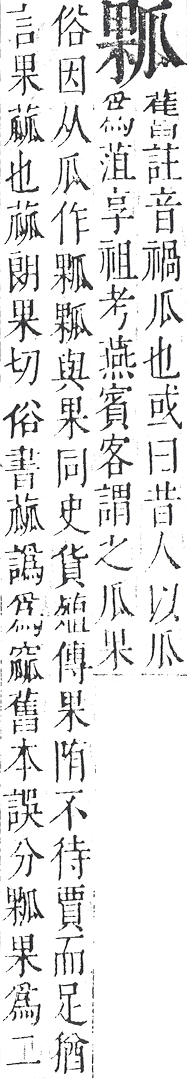 舊註音禍瓜也或曰昔人以瓜
爲菹享祖考燕賓客謂之瓜果
俗因从瓜作與果同史貨殖傳果陏不待賈而足猶
言果蓏也蓏朗果切俗書蓏譌爲窳舊本誤分果爲二